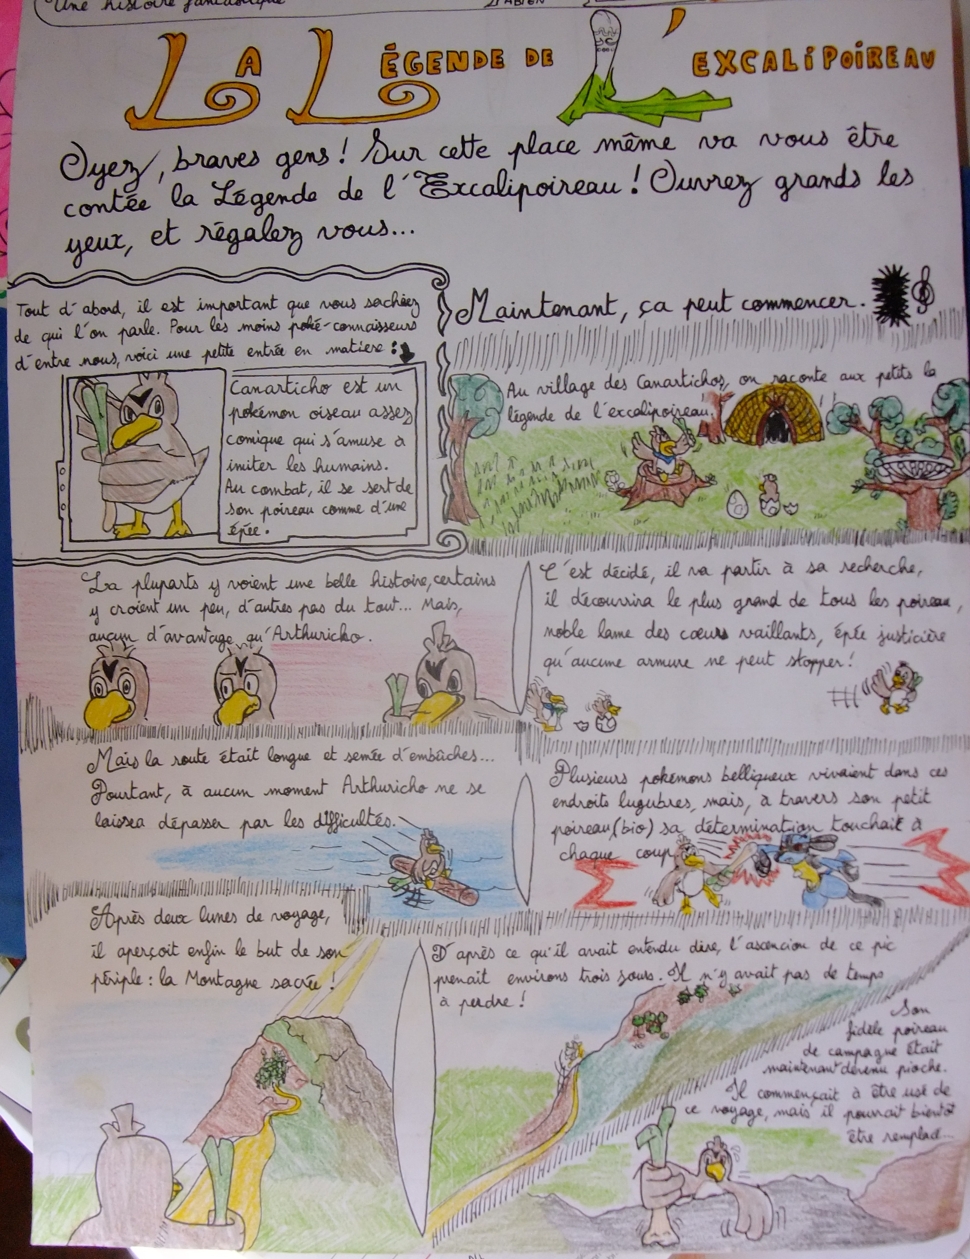 Une histoire fantastique
LA LÉGENDE DE L'EXCALIPOIREAU
Oyez, braves gens ! Sur cette place même va vous être
contée la Légende de l'Excalipoireau ! Ouvrez grands les
yeux, et régalez vous...
Tout d'abord, il est important que vous sachiez
de qui l'on parle. Pour les moins poké-connaisseurs
d'entre nous, voici une petite entrée en matière :
Canarticho est un
pokémon oiseau assez
comique qui s'amuse à
imiter les humains.
Au combat, il se sert de
son poireau comme d'une
épée.
Maintenant, ça peut commencer.
Au village des Canartichos, on raconte aux petits la
légende de l'excalipoireau.
La pluparts y voient une belle histoire, certains
y croient un peu, d'autres pas du tout... Mais,
aucun d'avantage qu'Arthuricho.
C'est décidé, il va partir à sa recherche,
il découvrira le plus grand de tous les poireau,
noble lame des cœurs vaillants, épée justicière
qu'aucune armure ne peut stopper !
Mais la route était longue et semée d'embûches...
Pourtant, à aucun moment Arthuricho ne se
laissa dépasser par les difficultés.
Plusieurs pokémons belliqueux vivaient dans ces
endroits lugubres, mais, à travers son petit
poireau (bio) sa détermination touchait à
chaque coup
Après deux lunes de voyage,
il aperçoit enfin le but de son
périple : la Montagne sacrée !
D'après ce qu'il avait entendu dire, l'ascencion de ce pic
prenait environs trois jours. Il n'y avait pas de temps
à perdre !
Son
fidèle poireau
de campagne était
maintenant devenu pioche.
Il commençait à être usé de
ce voyage, mais il pourrait bientôt
être remplacé...